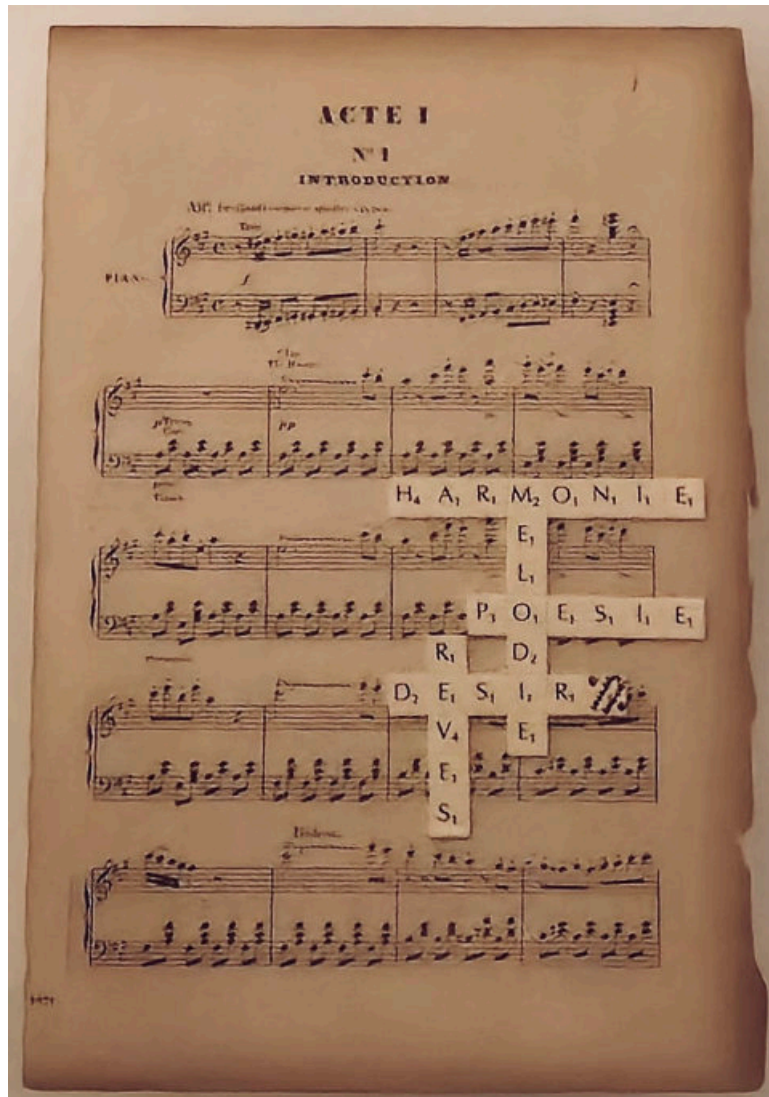 ACTE I
Nº 1
INTRODUCTION
PIANO
f
pp
H₄ A₁ R₁ M₂ O₁ N₁ I₁ E₁
E₁
L₁
P₃ O₁ E₁ S₁ I₁ E₁
R₁ D₂
D₂ E₁ S₁ I₁ R₁
V₄ E₁
E₁
S₁